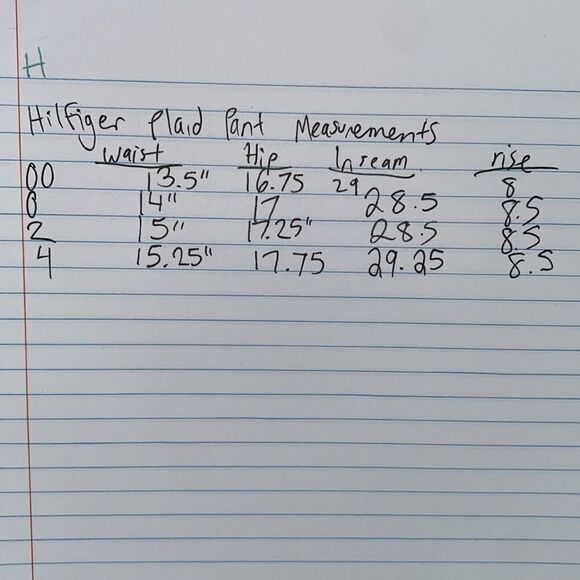 H
Hilfiger Plaid Pant Measurements
waist Hip Inseam rise
00 13.5" 16.75 29 8
0 14" 17 28.5 8.5
2 15" 17.25" 28.5 8.5
4 15.25" 17.75 29.25 8.5